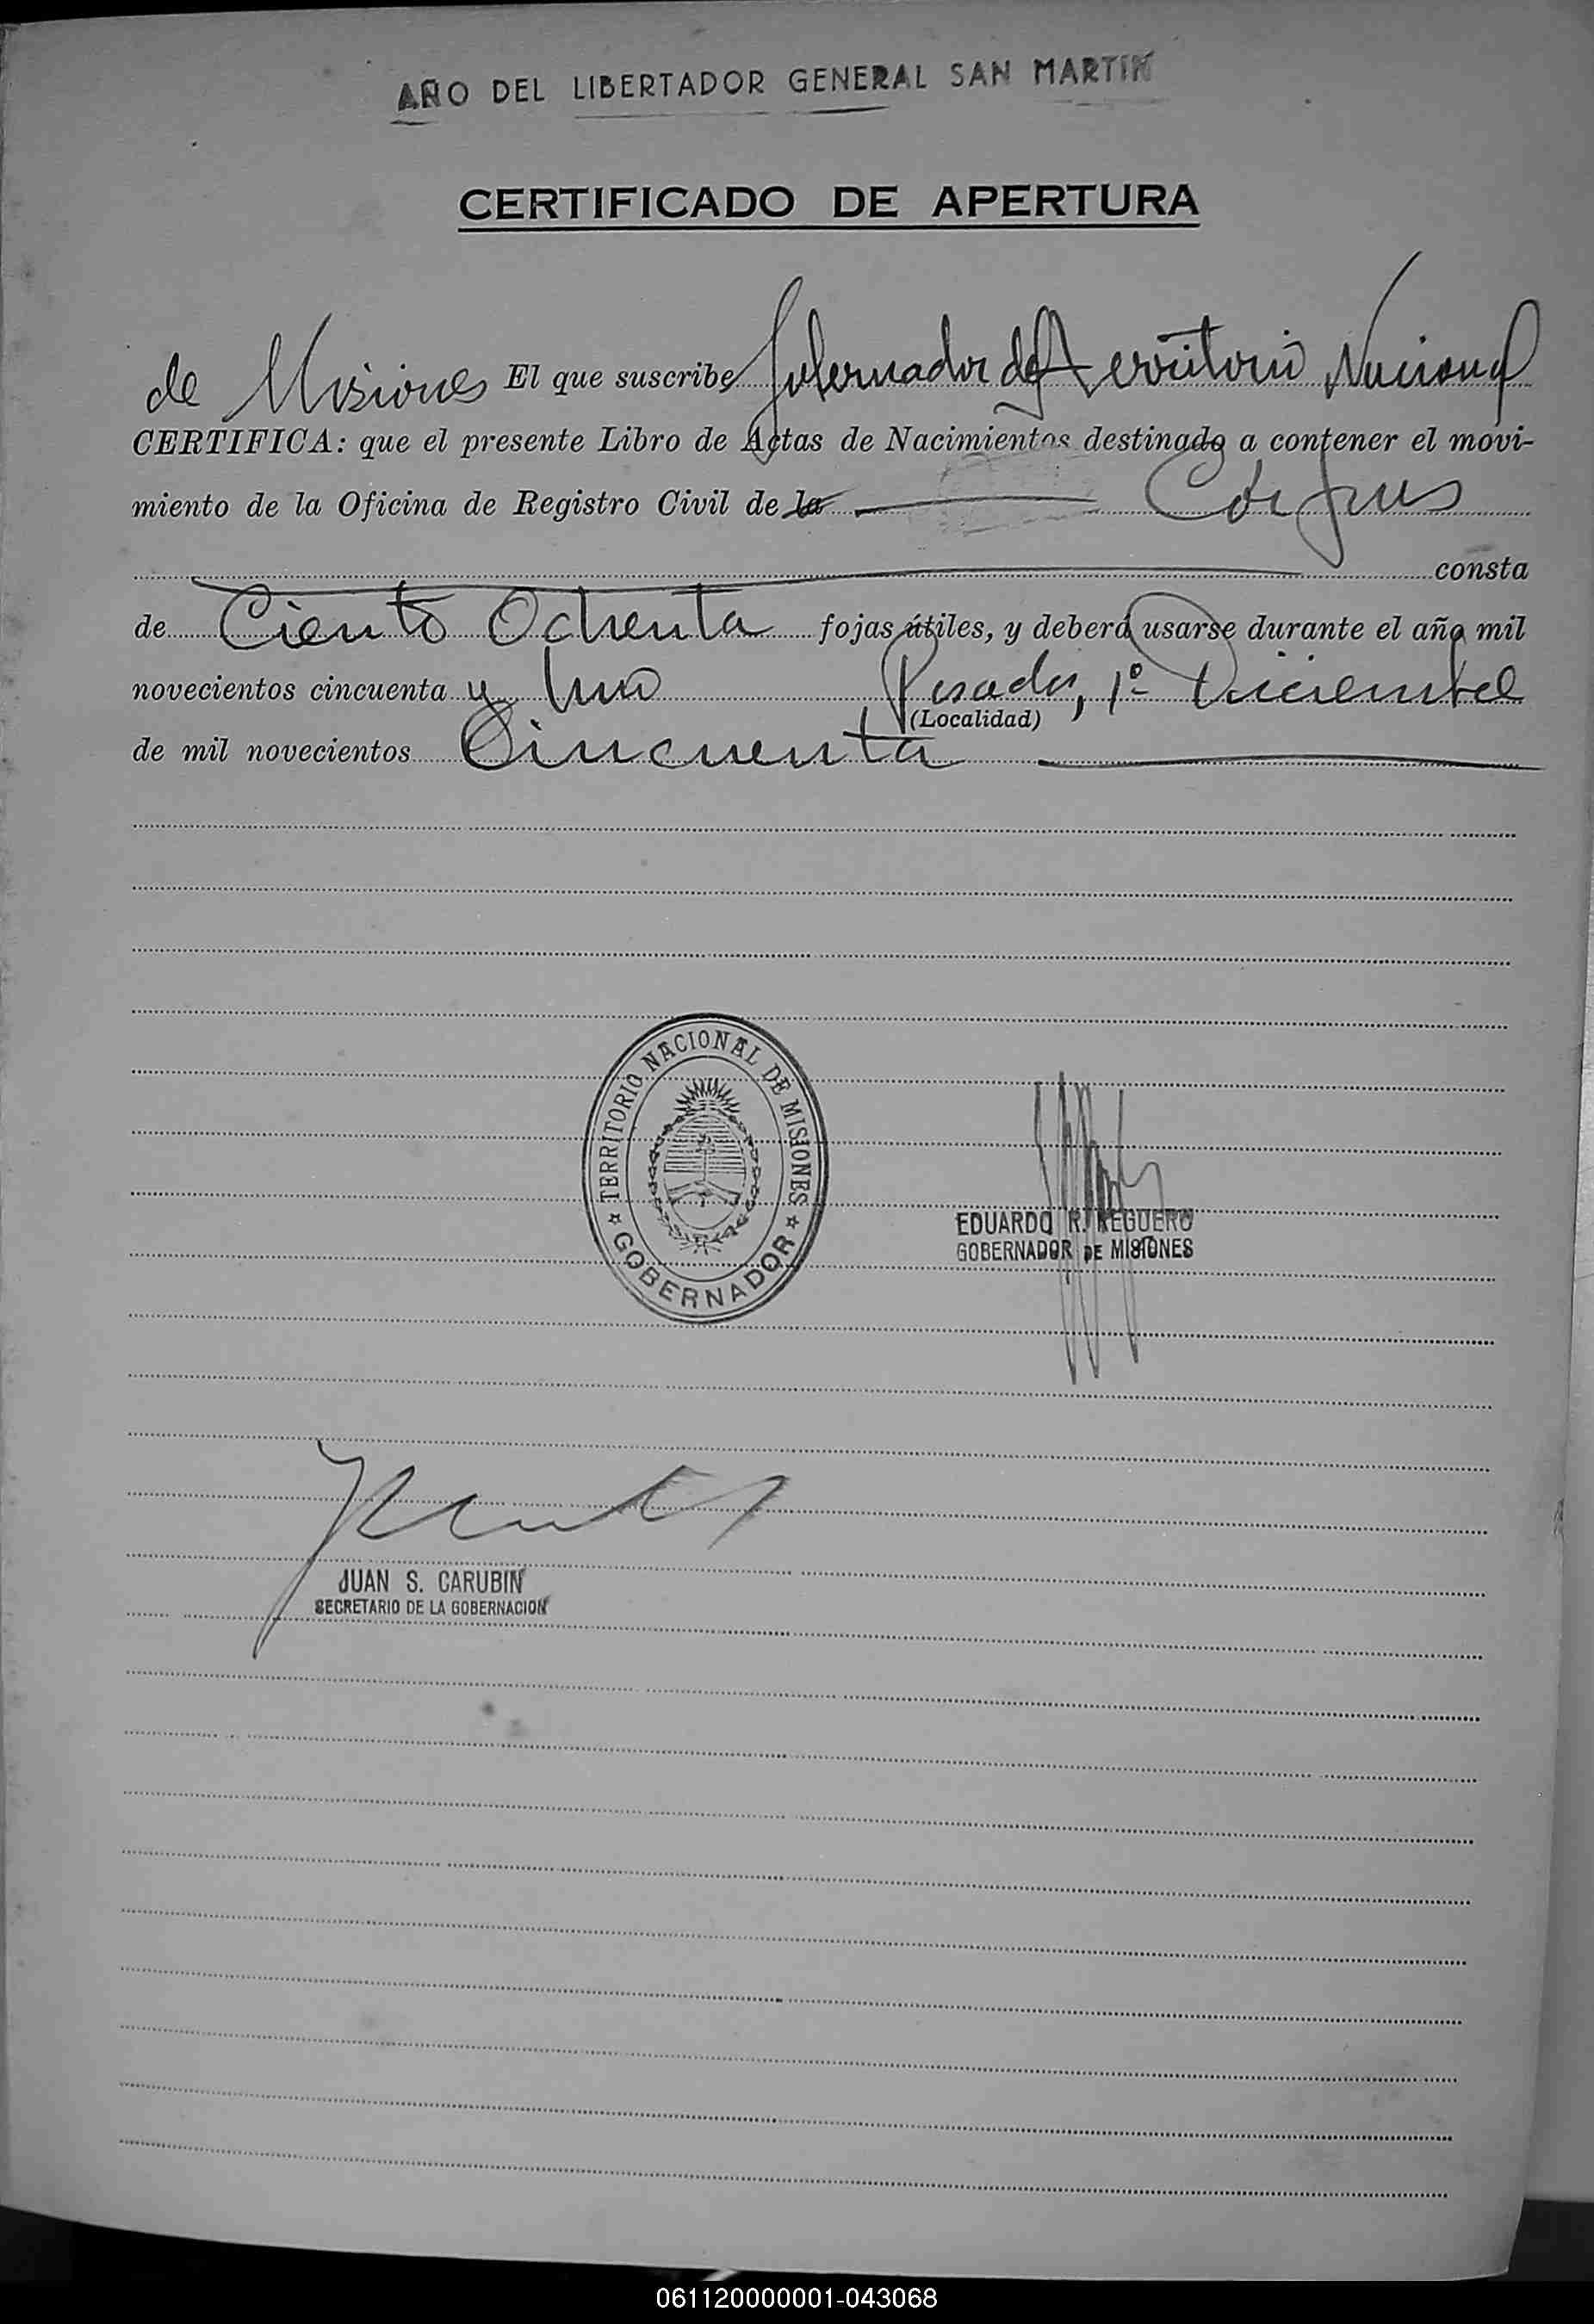 AÑO DEL LIBERTADOR GENERAL SAN MARTIN
CERTIFICADO DE APERTURA
de Misiones El que suscribe Gobernador del Territorio Nacional
CERTIFICA: que el presente Libro de Actas de Nacimientos destinado a contener el movi-
miento de la Oficina de Registro Civil de la Corpus
consta
de Ciento Ochenta fojas útiles, y deberá usarse durante el año mil
novecientos cincuenta y Uno Posadas, 1º Diciembre
(Localidad)
de mil novecientos Cincuenta
TERRITORIO NACIONAL DE MISIONES
GOBERNADOR
EDUARDO R. REGUERO
GOBERNADOR DE MISIONES
JUAN S. CARUBIN
SECRETARIO DE LA GOBERNACION
061120000001-043068